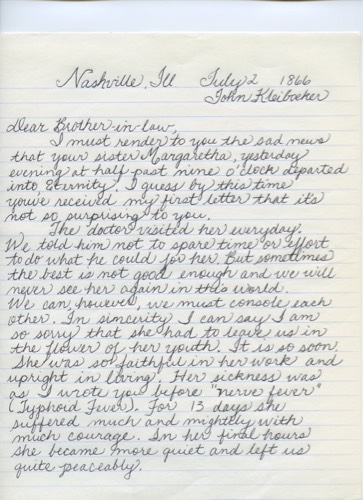 Nashville, Ill July 2 1866
John Kleiboeker
Dear Brother-in-law,
I must render to you the sad news
that your sister Margaretha, yesterday
evening at half past nine o'clock departed
into Eternity. I guess by this time
you've received my first letter that it's
not so surprising to you.
The doctor visited her everyday.
We told him not to spare time or effort
to do what he could for her. But sometimes
the best is not good enough and we will
never see her again in this world.
We can, however, we must console each
other. In sincerity I can say I am
so sorry that she had to leave us in
the flower of her youth. It is so soon.
She was so faithful in her work and
upright in living. Her sickness was
as I wrote you before "nerve fever"
(Typhoid Fever). For 13 days she
suffered much and mightily with
much courage. In her final hours
she became more quiet and left us
quite peaceably.